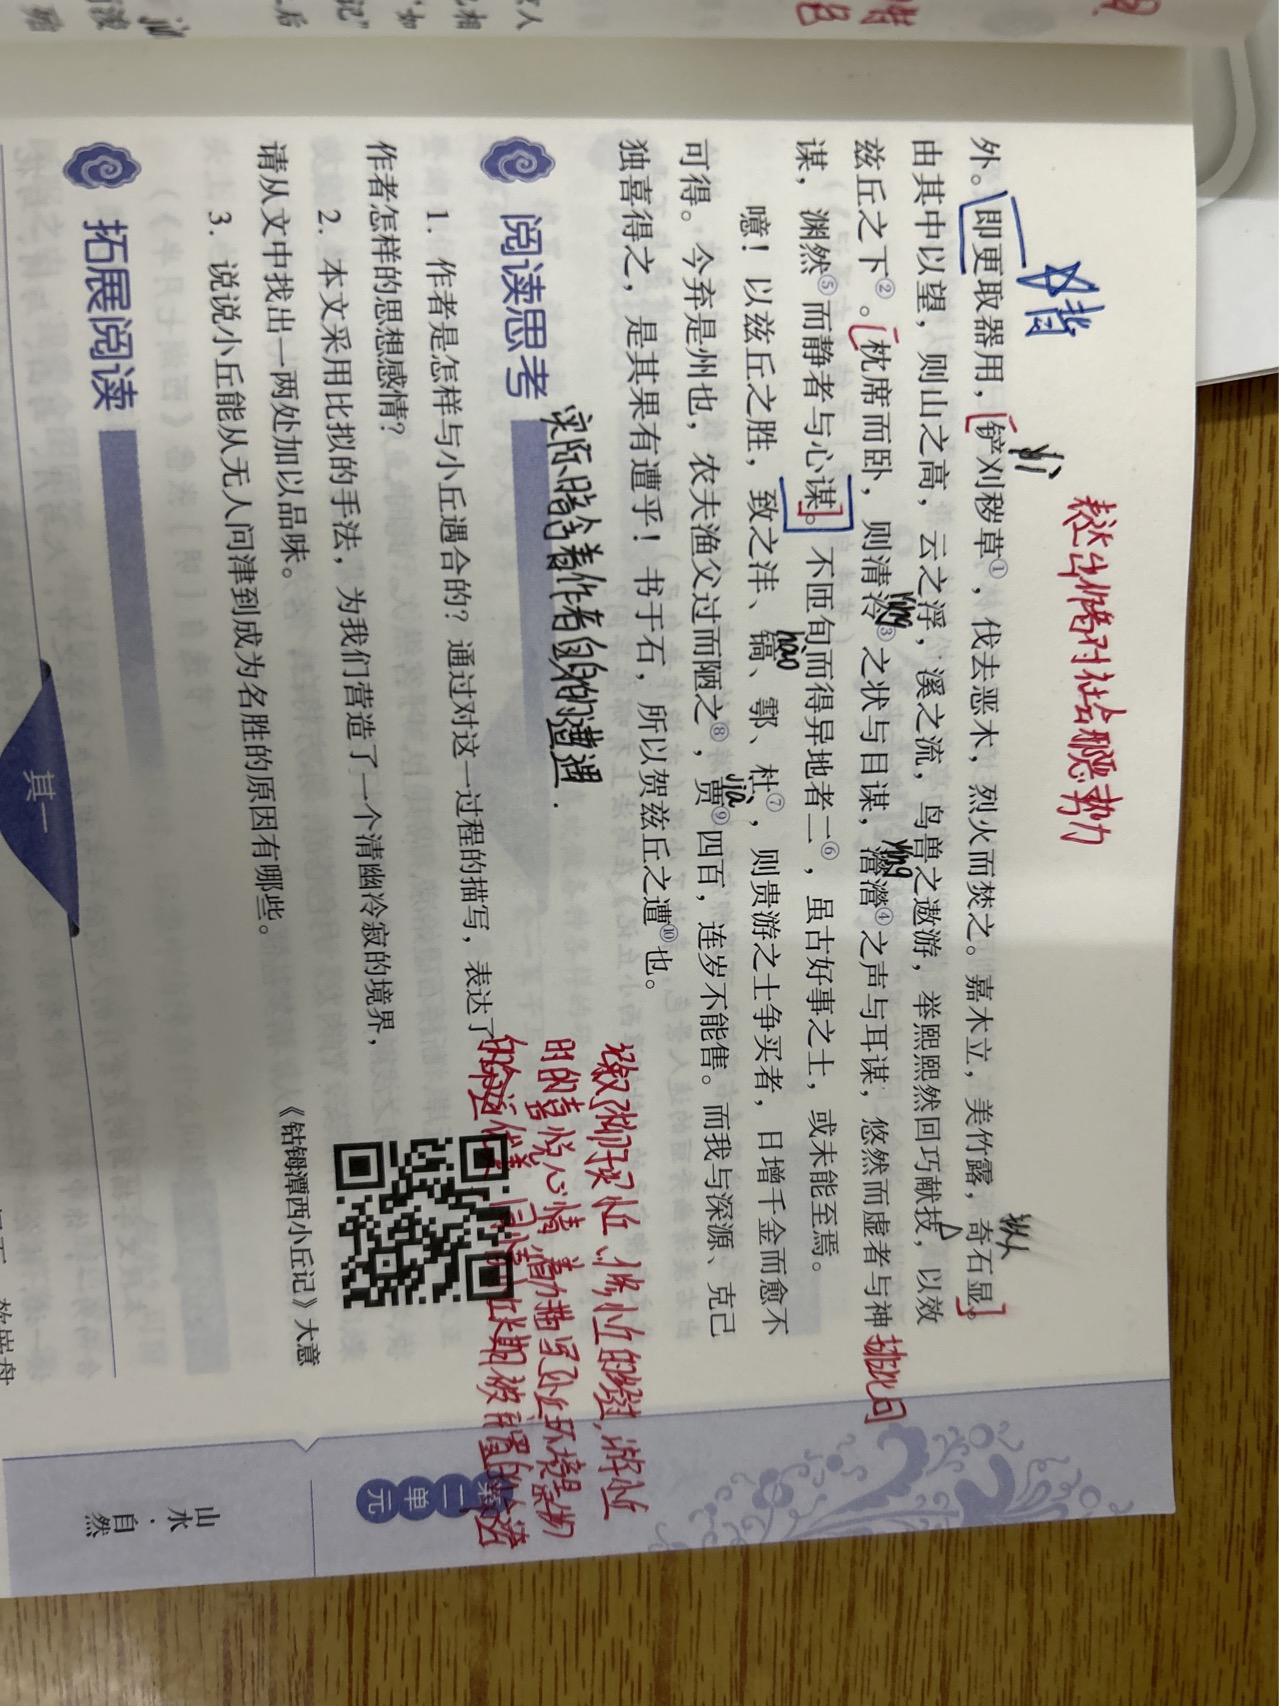 背
表达出作者对社会恶势力
yì
外。即更取器用，铲刈秽草①，伐去恶木，烈火而焚之。嘉木立，美竹露，奇石显。
由其中以望，则山之高，云之浮，溪之流，鸟兽之遨游，举熙熙然回巧献技，以效
兹丘之下②。枕席而卧，则清泠③之状与目谋，瀯瀯④之声与耳谋，悠然而虚者与神
排比句
yíng
谋，渊然⑤而静者与心谋。不匝旬而得异地者二⑥，虽古好事之士，或未能至焉。
hào
噫！以兹丘之胜，致之沣、镐、鄠、杜⑦，则贵游之士争买者，日增千金而愈不
可得。今弃是州也，农夫渔父过而陋之⑧，贾⑨四百，连岁不能售。而我与深源、克己
jià
独喜得之，是其果有遭乎！书于石，所以贺兹丘之遭⑩也。
实际暗含着作者自身的遭遇.
阅读思考
1. 作者是怎样与小丘遇合的？通过对这一过程的描写，表达了
作者怎样的思想感情？
2. 本文采用比拟的手法，为我们营造了一个清幽冷寂的境界，
请从文中找出一两处加以品味。
3. 说说小丘能从无人问津到成为名胜的原因有哪些。
时的喜悦心情
《钴𬭁潭西小丘记》大意
拓展阅读
其一
第二单元
山水·自然